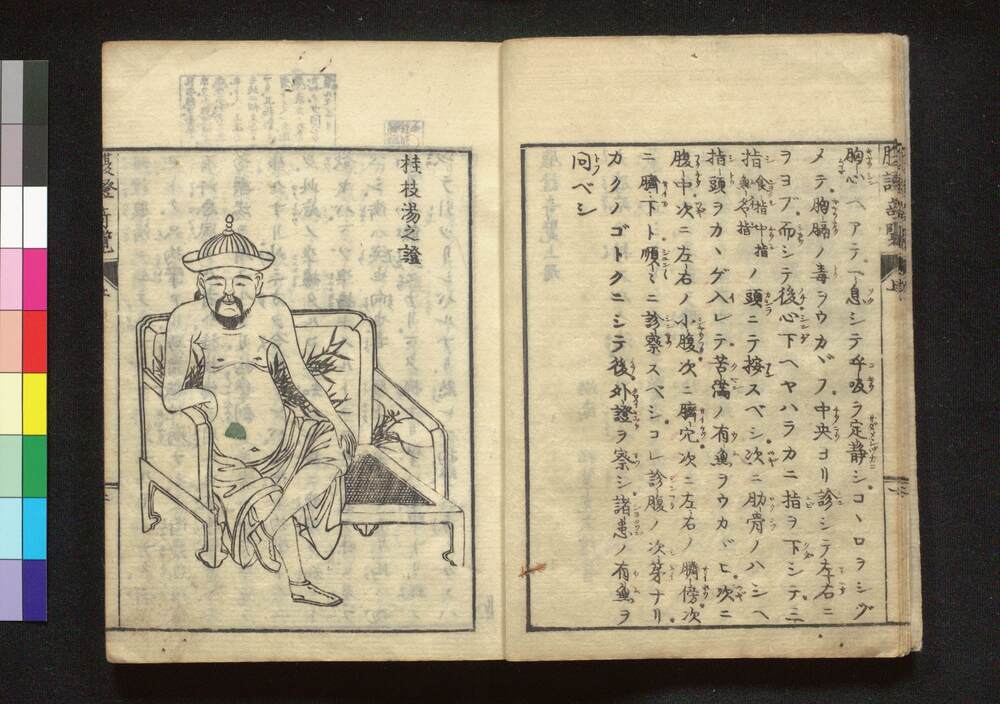 胸心ヘアテ一息シテ呼吸ヲ定静シコヽロヲシヅ
メテ胸膈ノ毒ヲウカヾフ中央ヨリ診シテ左右ニ
ヲヨブ而シテ後心下ヘヤハラカニ指ヲ下シテ三
指食指中指無名指ノ頭ニテ按スベシ次ニ肋骨ノハシヘ
指頭ヲカヽゲ入レテ苦満ノ有無ヲウカヾヒ次ニ
腹中次ニ左右ノ小腹次ニ臍穴次ニ左右ノ臍傍次
ニ臍下ト順〻ニ診察スベシコレ診腹ノ次第ナリ
カクノゴトクニシテ後外證ヲ察シ諸患ノ有無ヲ
問ベシ
桂枝湯之證